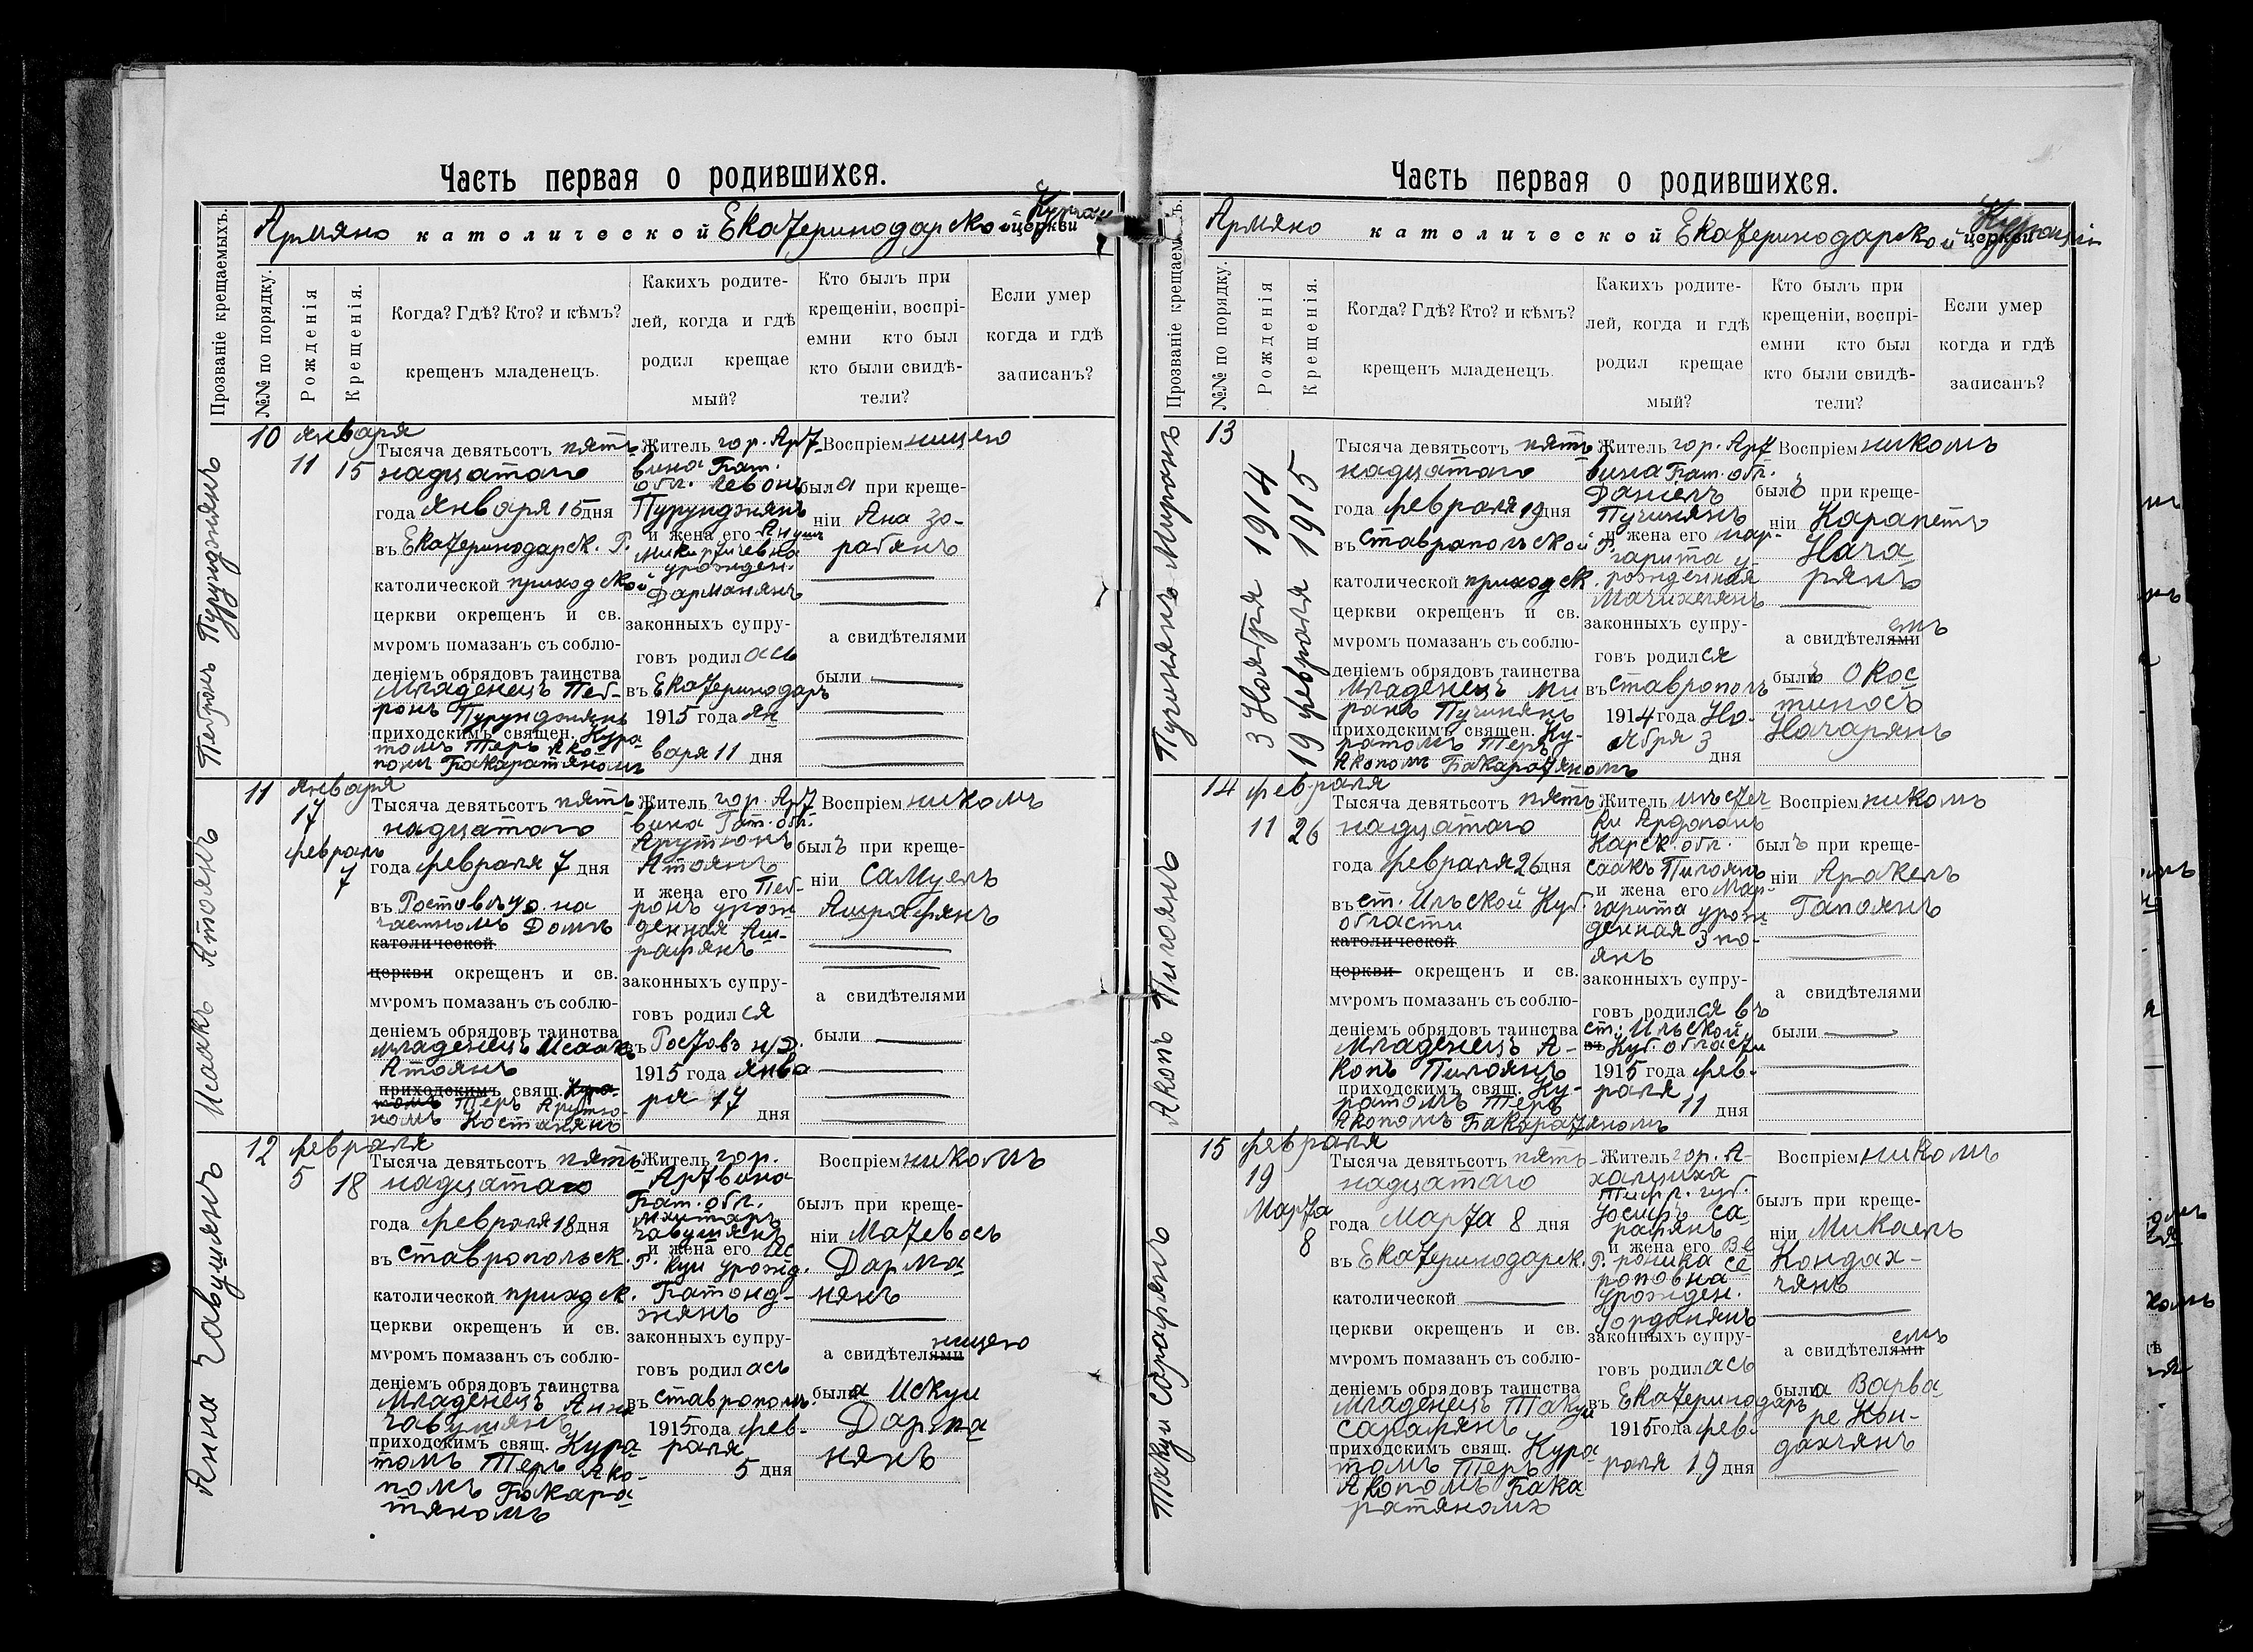 Часть первая о родившихся.
Армяно католической Екатеринодарской церкви
Прозваніе крещаемыхъ.
№№ по порядку.
Рожденія
Крещенія.
Когда? Гдѣ? Кто? и кѣмъ?
крещенъ младенецъ.
Какихъ родите-
лей, когда и гдѣ
родил крещае
мый?
Кто былъ при
крещеніи, воспрі-
емни кто был
кто были свидѣ-
тели?
Если умер
когда и гдѣ
записанъ?
Петронъ Пурунджянъ
10
января
11 15
Тысяча девятьсот пят-
надцатаго
года января 15 дня
въ Екатеринодарск. Р.
католической приходской
церкви окрещенъ и св.
мѵромъ помазан съ соблю-
деніемъ обрядовъ таинства
младенецъ Пет-
ронъ Пурунджянъ
приходскимъ священ. Кура
томъ Теръ Ако-
помъ Бакаратяномъ
Житель гор. Арт-
вина Бат.
обл. Левонъ
Пурунджянъ
и жена его Ануш
Микиртичевна
урожден.
Дарманянъ
законныхъ супру-
говъ родилась
въ Екатеринодаръ
1915 года ян
варя 11 дня
Воспріемницею
была при креще-
ніи Ана Зо-
рабянъ
а свидѣтелями
были
Исаакъ Атоянъ
11
января
17
февраль
7
Тысяча девятьсот пят-
надцатаго
года февраля 7 дня
въ Ростовѣ н/о. на
частномъ Домѣ
католической
церкви окрещенъ и св.
мѵромъ помазан съ соблю-
деніемъ обрядовъ таинства
младенецъ Исаакъ
Атоянъ
приходскимъ свящ. Кура-
томъ Теръ Арутю-
номъ Костанянъ
Житель гор. Арт-
вина Бат. обл.
Арутюнъ
Атоянъ
и жена его Пет-
ронъ урож
денная Аш-
рафянъ
законныхъ супру-
говъ родился
въ Ростовъ н/Д.
1915 года янва
ря 17 дня
Воспріемникомъ
былъ при креще-
ніи Самуелъ
Ашрафянъ
а свидѣтелями
были
Анна Чавушянъ
12
февраля
5 18
Тысяча девятьсот пять-
надцатаго
года февраля 18 дня
въ Ставропольск. Р.
католической приходск.
церкви окрещенъ и св.
мѵромъ помазан съ соблю-
деніемъ обрядовъ таинства
младенецъ Анна
Чавушянъ
приходскимъ свящ. Кура-
томъ Теръ Ако-
помъ Бакара
тяномъ
Житель гор.
Артвина
Бат. обл.
Мхитаръ
Чавушянъ
и жена его Ис
куи урожд.
Батонд-
жянъ
законныхъ супру-
говъ родилась
въ Ставрополь.
1915 года фев-
раля
5 дня
Воспріемникомъ
былъ при креще-
ніи Матевосъ
Дарма
нянъ
а свидѣтелями ницею
была Искуи
Дарма
нянъ
Часть первая о родившихся.
Армяно католической Екатеринодарской церкви
Прозваніе крещаем ъ.
№№ по порядку.
Рожденія
Крещенія.
Когда? Гдѣ? Кто? и кѣмъ?
крещенъ младенецъ.
Какихъ родите-
лей, когда и гдѣ
родил крещае
мый?
Кто былъ при
крещеніи, воспрі-
емни кто был
кто были свидѣ-
тели?
Если умер
когда и гдѣ
записанъ?
Пучинянъ Миранъ
13
3 Ноября 1914
19 февраля 1915
Тысяча девятьсот пять-
надцатаго
года февраля 19 дня
въ Ставропольской Р.
католической приходск.
церкви окрещенъ и св.
мѵромъ помазан съ соблю-
деніемъ обрядовъ таинства
младенецъ Ми
ранъ Пучинянъ
приходскимъ священ. Ку-
ратомъ Теръ
Акопомъ Бакаратяномъ
Житель гор. Арт
вина Бат. обл.
Даніелъ
Пучинянъ
и жена его мар-
гарита у
рожденная
Мачихелянъ
законныхъ супру-
говъ родился
въ Ставрополь
1914 года Но-
ября 3
дня
Воспріемникомъ
былъ при креще-
ніи Карапетъ
Нача
рянъ
а свидѣтелями емъ
былъ Окос
тиносъ
Начарянъ
Акопъ Пилоянъ
14
февраля
11 26
Тысяча девятьсот пять-
надцатаго
года февраля 26 дня
въ ст. Ильской Куб.
области
католической
церкви окрещенъ и св.
мѵромъ помазан съ соблю-
деніемъ обрядовъ таинства
младенецъ А-
копъ Пилоянъ
приходскимъ свящ. Ку-
ратомъ Теръ
Акопомъ Бакаратяномъ
Житель мѣстеч
ки Ардоганъ
Карск. обл.
Саакъ Пилоянъ
и жена его Мар-
гарита урож
денная Зпо-
янъ
законныхъ супру-
говъ родился въ
ст. Ильской,
въ Куб. области
1915 года фев-
раля
11 дня
Воспріемникомъ
былъ при креще-
ніи Аракелъ
Гапоянъ
а свидѣтелями
были
Такуи Сарафянъ
15
февраля
19
Марта
8
Тысяча девятьсот пять-
надцатаго
года Марта 8 дня
въ Екатеринодарск. Р.
католической
церкви окрещенъ и св.
мѵромъ помазан съ соблю-
деніемъ обрядовъ таинства
младенецъ Такуи
Сарафянъ
приходскимъ свящ. Кура
томъ Теръ
Акопомъ Бака
ратяномъ
Житель гор. А-
халциха
Тифл. губ.
Іосифъ Са-
рафянъ
и жена его Ве
роника Се
роповна
урожден.
Іорданянъ
законныхъ супру-
говъ родилась
въ Екатеринодаръ
1915 года фев-
раля 19 дня
Воспріемникомъ
былъ при креще-
ніи Микаелъ
Кондах-
чянъ
а свидѣтелями емъ
была Варва
ре Кон-
дахчянъ